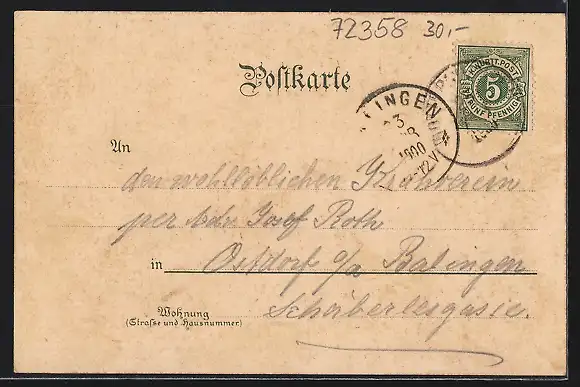 72358 30,-
K. WÜRTT. POST
5
FÜNF PFENNIG
Postkarte
LINGEN
3
1900
-12 V
An
den wohllöblichen Krahverein
per Adr Josef Roth
in Ostdorf o/a Balingen
Wohnung
(Straße und Hausnummer)
Schäberlesgasse.